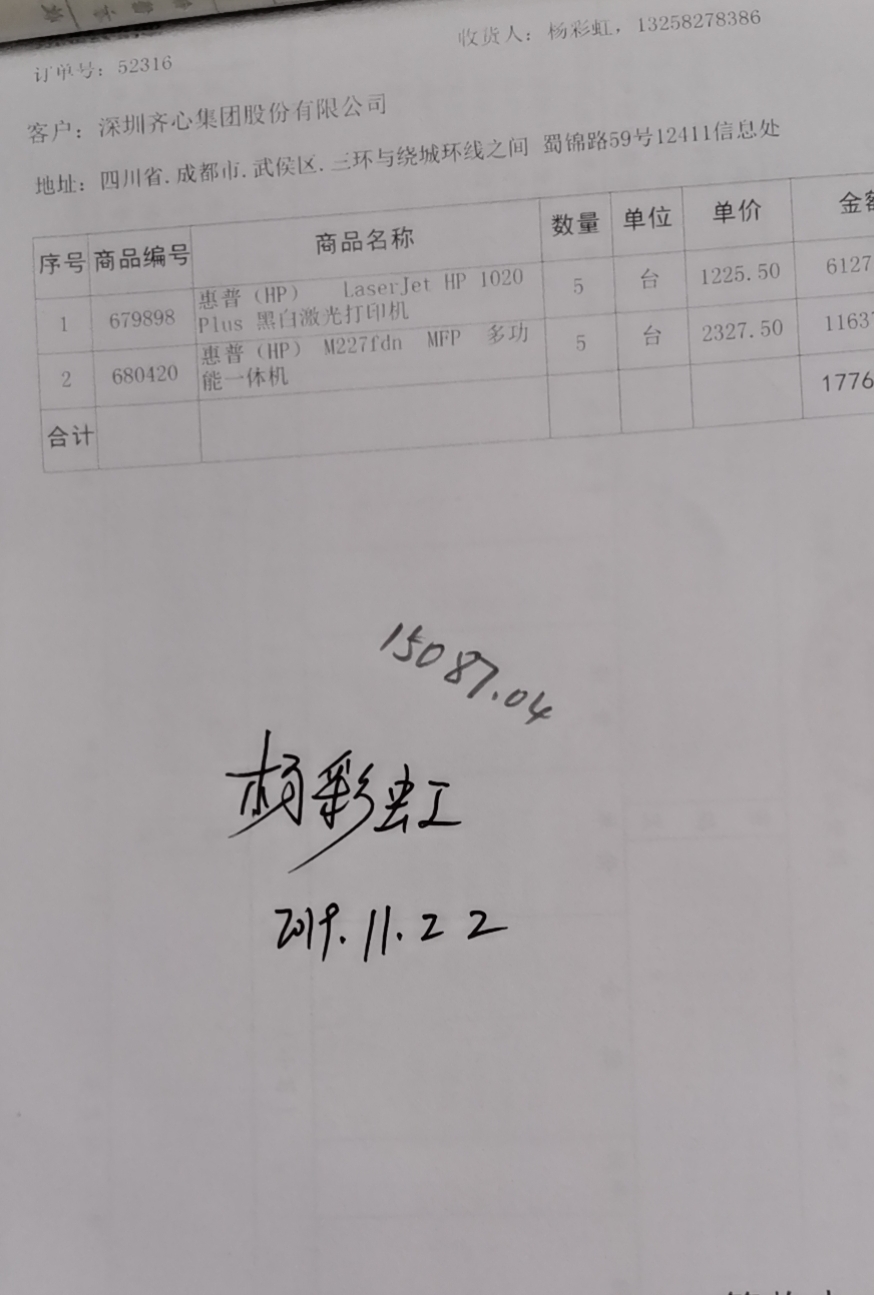 收货人：杨彩虹，13258278386
订单号：52316
客户：深圳齐心集团股份有限公司
地址：四川省.成都市.武侯区.三环与绕城环线之间 蜀锦路59号12411信息处
序号 商品编号 商品名称 数量 单位 单价 金额
1 679898 惠普（HP） LaserJet HP 1020 Plus 黑白激光打印机 5 台 1225.50 6127
2 680420 惠普（HP） M227fdn MFP 多功能一体机 5 台 2327.50 1163
合计 1776
15087.04
杨彩虹
2019.11.22